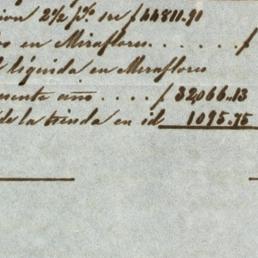 ion 2½ p% en $ 44811.91
os en Miraflores. . . . . . $
l líquida en Miraflores
esente año. . . . $ 32,066..13
de la tienda en id 1095.75